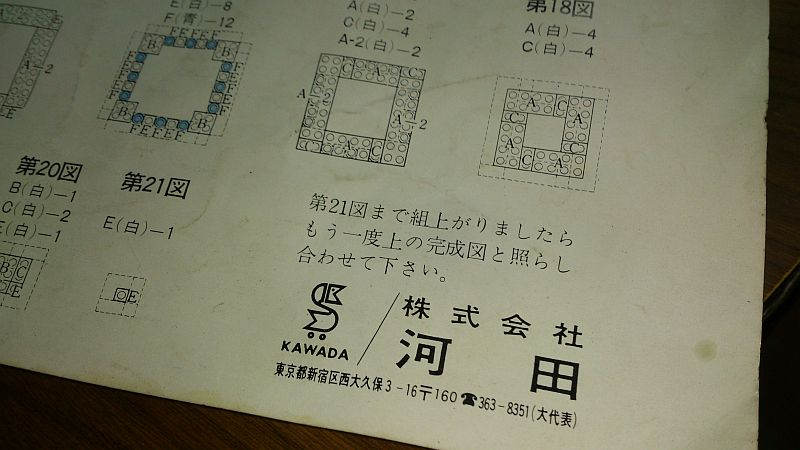 E(白)−8
F(青)−12
A(白)−2
C(白)−4
A-2(白)−2
第18図
A(白)−4
C(白)−4
第20図
B(白)−1
C(白)−2
E(白)−1
第21図
E(白)−1
第21図まで組上がりましたら
もう一度上の完成図と照らし
合わせて下さい。
KAWADA
株式会社
河田
東京都新宿区西大久保3−16〒160☎363−8351(大代表)